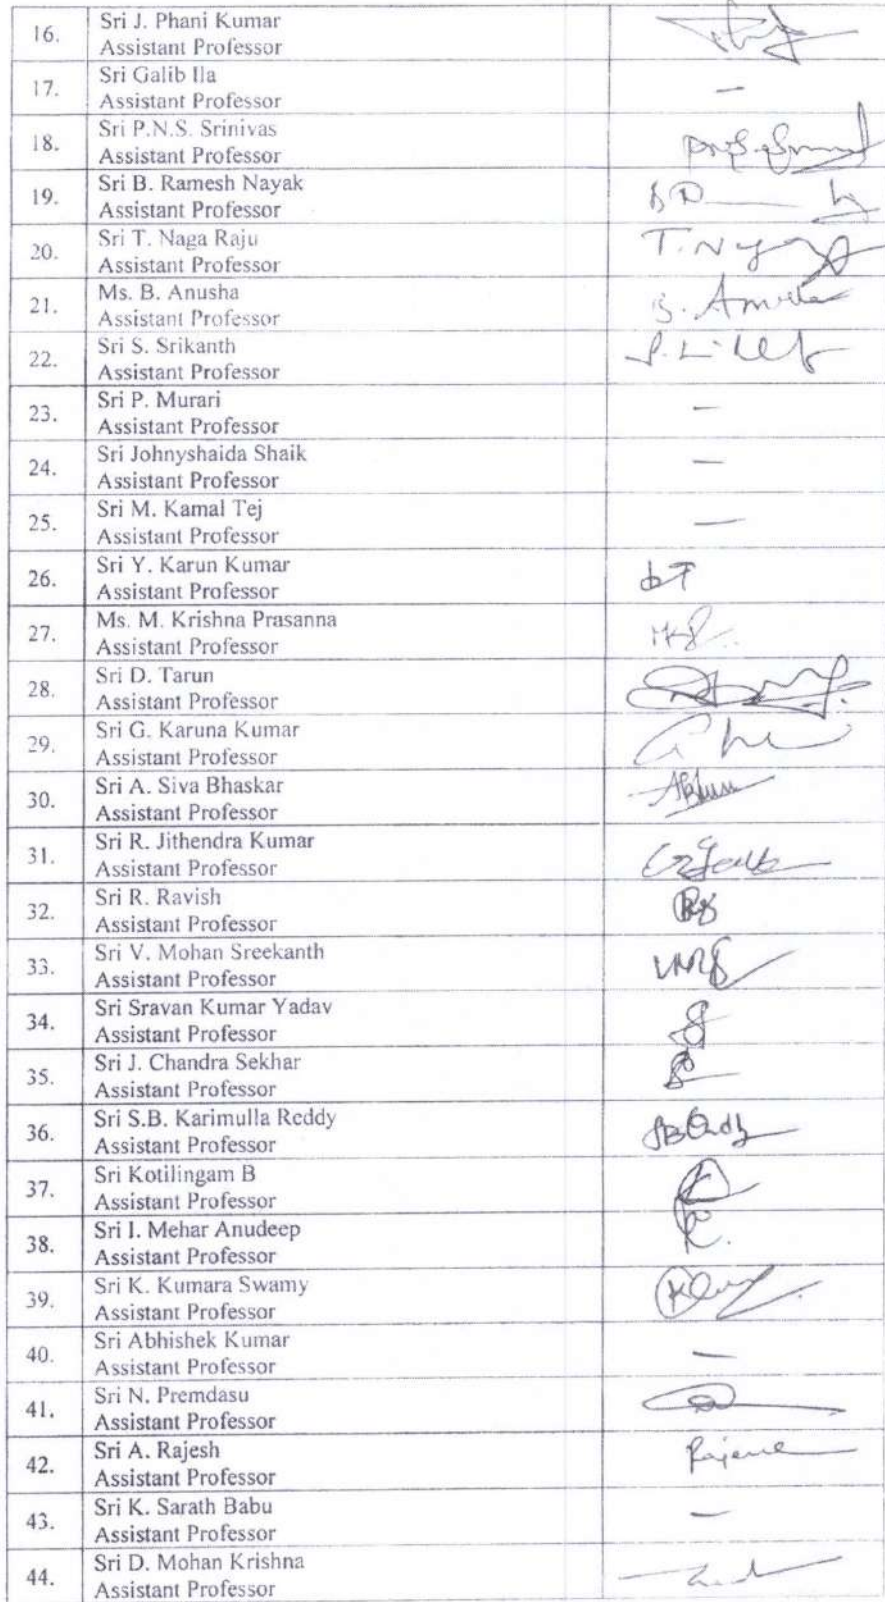 16. Sri J. Phani Kumar
Assistant Professor
17. Sri Galib Ila
Assistant Professor
—
18. Sri P.N.S. Srinivas
Assistant Professor
19. Sri B. Ramesh Nayak
Assistant Professor
20. Sri T. Naga Raju
Assistant Professor
21. Ms. B. Anusha
Assistant Professor
22. Sri S. Srikanth
Assistant Professor
23. Sri P. Murari
Assistant Professor
—
24. Sri Johnyshaida Shaik
Assistant Professor
—
25. Sri M. Kamal Tej
Assistant Professor
—
26. Sri Y. Karun Kumar
Assistant Professor
27. Ms. M. Krishna Prasanna
Assistant Professor
28. Sri D. Tarun
Assistant Professor
29. Sri G. Karuna Kumar
Assistant Professor
30. Sri A. Siva Bhaskar
Assistant Professor
31. Sri R. Jithendra Kumar
Assistant Professor
32. Sri R. Ravish
Assistant Professor
33. Sri V. Mohan Sreekanth
Assistant Professor
34. Sri Sravan Kumar Yadav
Assistant Professor
35. Sri J. Chandra Sekhar
Assistant Professor
36. Sri S.B. Karimulla Reddy
Assistant Professor
37. Sri Kotilingam B
Assistant Professor
38. Sri I. Mehar Anudeep
Assistant Professor
39. Sri K. Kumara Swamy
Assistant Professor
40. Sri Abhishek Kumar
Assistant Professor
—
41. Sri N. Premdasu
Assistant Professor
42. Sri A. Rajesh
Assistant Professor
43. Sri K. Sarath Babu
Assistant Professor
—
44. Sri D. Mohan Krishna
Assistant Professor